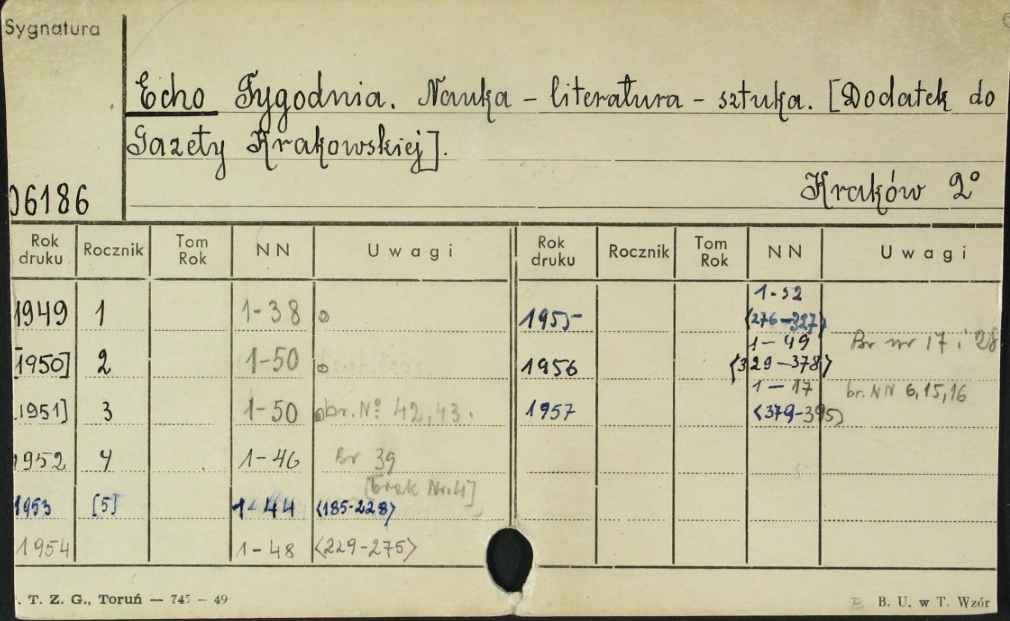 Sygnatura
Echo Tygodnia. Nauka - literatura - sztuka. [Dodatek do
Gazety Krakowskiej].
06186
Kraków 2°
Rok druku Rocznik Tom Rok NN Uwagi Rok druku Rocznik Tom Rok NN Uwagi
1949 1 1-38 1955 1-52 <276-327>
[1950] 2 1-50 1956 1-49 <329-378> Br nr 17 i 28
[1951] 3 1-50 br. No 42, 43. 1957 1-17 <379-395> br. NN 6, 15, 16
1952 4 1-46 Br 39
[brak Nr. 4]
1953 [5] 1-44 <185-228>
1954 1-48 <229-275>
T. Z. G., Toruń — 49
B. U. w T. Wzór